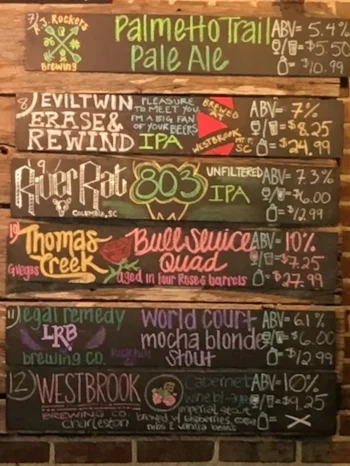 7)
R.J. Rockers
Brewing
Palmetto Trail
Pale Ale
ABV= 5.4%
$5.50
= $10.99
8) EVILTWIN
ERASE &
REWIND
PLEASURE
TO MEET YOU,
I'M A BIG FAN
OF YOUR BEERS
IPA
BREWED
AT
WESTBROOK
MT. P.
SC
ABV= 7%
= $8.25
= $24.99
River Rat
COLUMBIA, SC
803
UNFILTERED
IPA
ABV= 7.3%
= $6.00
= $12.99
10) Thomas
Creek
Gvegas
Bull Sluice
Quad
aged in four Roses barrels
ABV= 10%
= $7.25
= $27.99
11) Legal remedy
LRB
brewing co.
World Court
mocha blonde
stout
ABV= 6.1%
= $6.00
= $12.99
12) WESTBROOK
BREWING CO.
Charleston
Cabernet
wine bl-aged
imperial stout
brewed w/ raspberries, cocoa
nibs & vanilla beans
ABV= 10%
= $9.25
= X